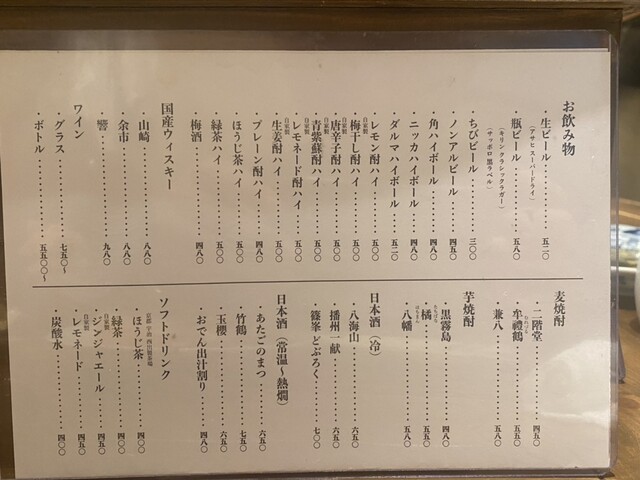 お飲み物
・生ビール 五二〇
（アサヒ スーパードライ）
・瓶ビール 五八〇
（キリン クラシックラガー）
（サッポロ 黒ラベル）
・ちびビール 三〇〇
・ノンアルビール 四五〇
・角ハイボール 四八〇
・ニッカハイボール 四八〇
・ダルマハイボール 五二〇
・レモン酎ハイ 五〇〇
自家製
・梅干し酎ハイ 五〇〇
自家製
・唐辛子酎ハイ 五〇〇
自家製
・青紫蘇酎ハイ 五〇〇
自家製
・レモネード酎ハイ 五〇〇
自家製
・生姜酎ハイ 五〇〇
・プレーン酎ハイ 四八〇
・ほうじ茶ハイ 五〇〇
・緑茶ハイ 五〇〇
・梅酒 四八〇
国産ウィスキー
・山崎 八八〇
・余市 八八〇
・響 九八〇
ワイン
・グラス 七五〇〜
・ボトル 五五〇〇〜
麦焼酎
・二階堂 四五〇
・牟禮鶴 五五〇
・兼八 五八〇
芋焼酎
・黒霧島 四八〇
・橘 五五〇
・八幡 五八〇
日本酒（冷）
・八海山 六五〇
・播州一献 六五〇
・篠峯どぶろく 七〇〇
日本酒（常温〜熱燗）
・あたごのまつ 六五〇
・竹鶴 七五〇
・玉櫻 六五〇
・おでん出汁割り 四八〇
ソフトドリンク
・ほうじ茶 四〇〇
・緑茶 四〇〇
自家製
・ジンジャエール 四五〇
自家製
・レモネード 四五〇
・炭酸水 四〇〇